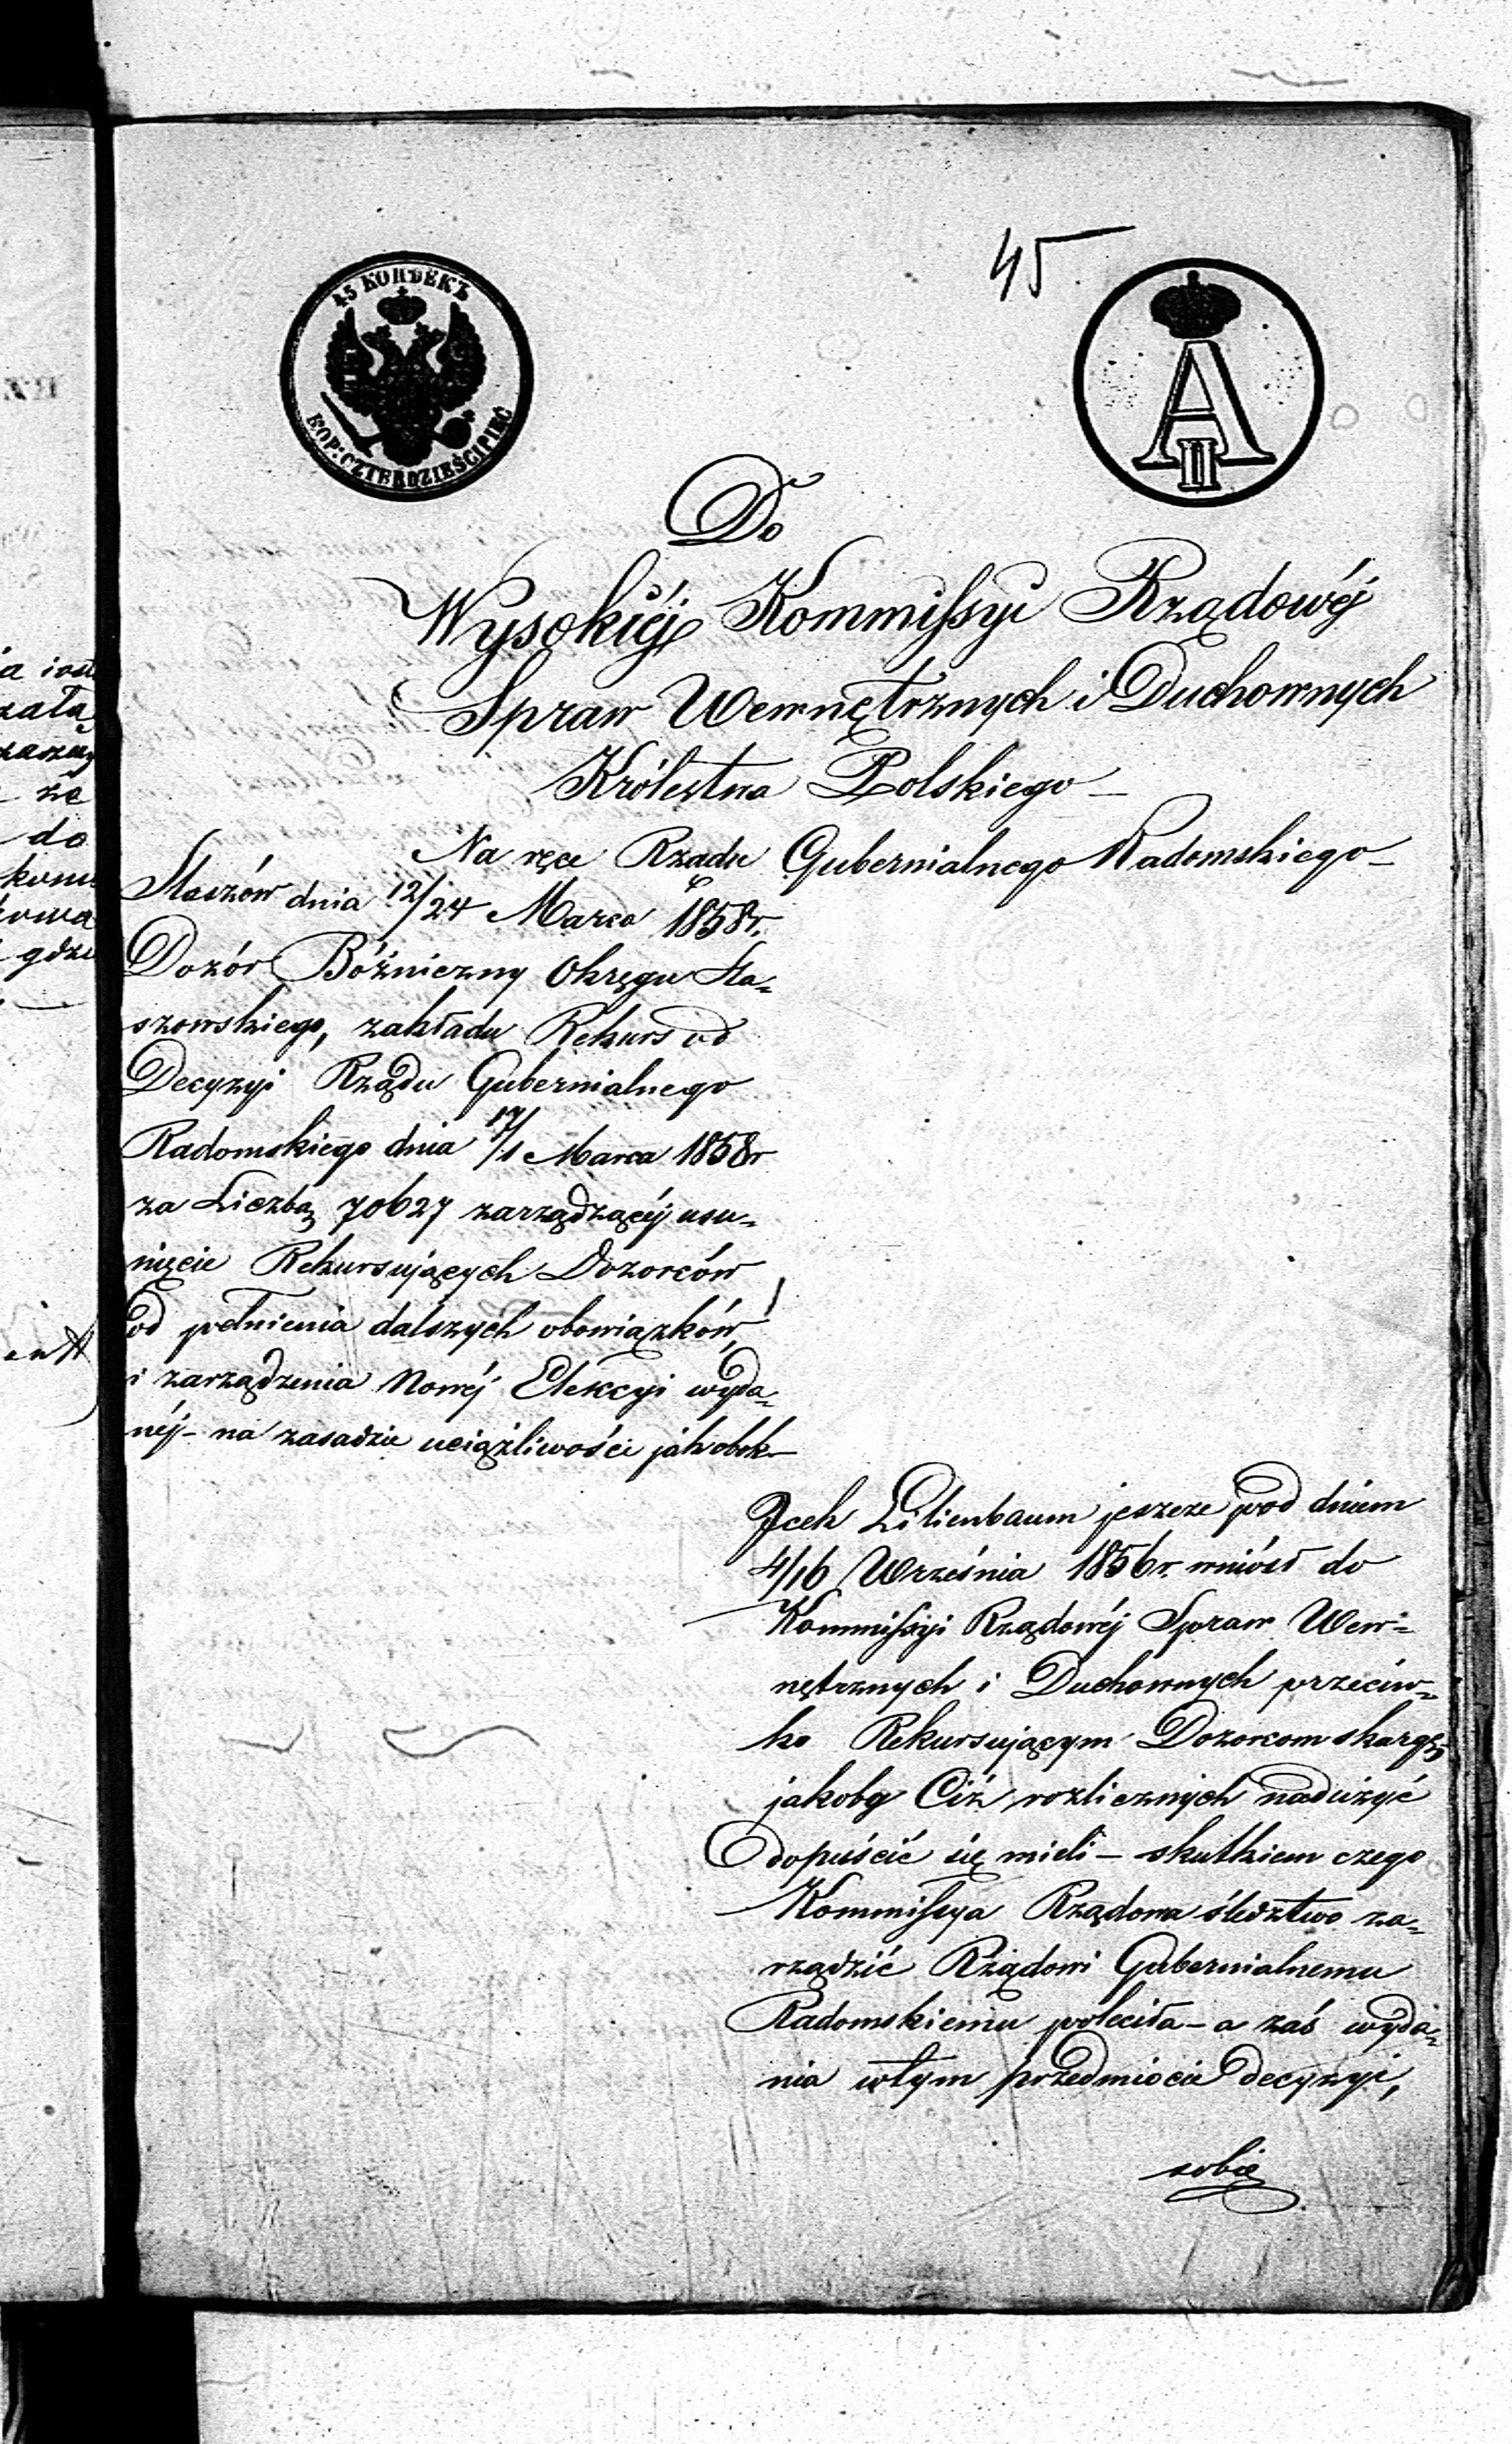 45
45 КОПѢЕКЪ
KOP: CZTERDZIEŚCI PIĘĆ
A II
Do
Wysokiéj Kommissyi Rządowéj
Spraw Wewnętrznych i Duchownych
Królestwa Polskiego –
Na ręce Rządu Gubernialnego Radomskiego –
Staszów dnia 12/24 Marca 1858 r.
Dozór Bóźniczny Okręgu Sta=
szowskiego, zakłada Rekurs od
Decyzyi Rządu Gubernialnego
Radomskiego dnia 17/1 Marca 1858 r
za Liczbą 70627 zarządzącéj usu=
nięcie Rekursujących Dozorców
od pełnienia dalszych obowiązków,
i zarządzenia Nowéj Elekcyi wyda=
néj – na zasadzie uciążliwości jak obok –
Icek Lilienbaum jeszcze pod dniem
4/16 Września 1856 r. wniósł do
Kommissyi Rządowéj Spraw Wew=
nętrznych i Duchownych przeciw=
ko Rekursującym Dozorcom skargę,
jakoby Ciż rozlicznych nadużyć
dopuścić się mieli – skutkiem czego
Kommissya Rządowa śledztwo za=
rządzić Rządowi Gubernialnemu
Radomskiemu poleciła – a zaś wyda=
nia wtym przedmiocie decyzyi,
sobie
a
zała
że
do
gdzie